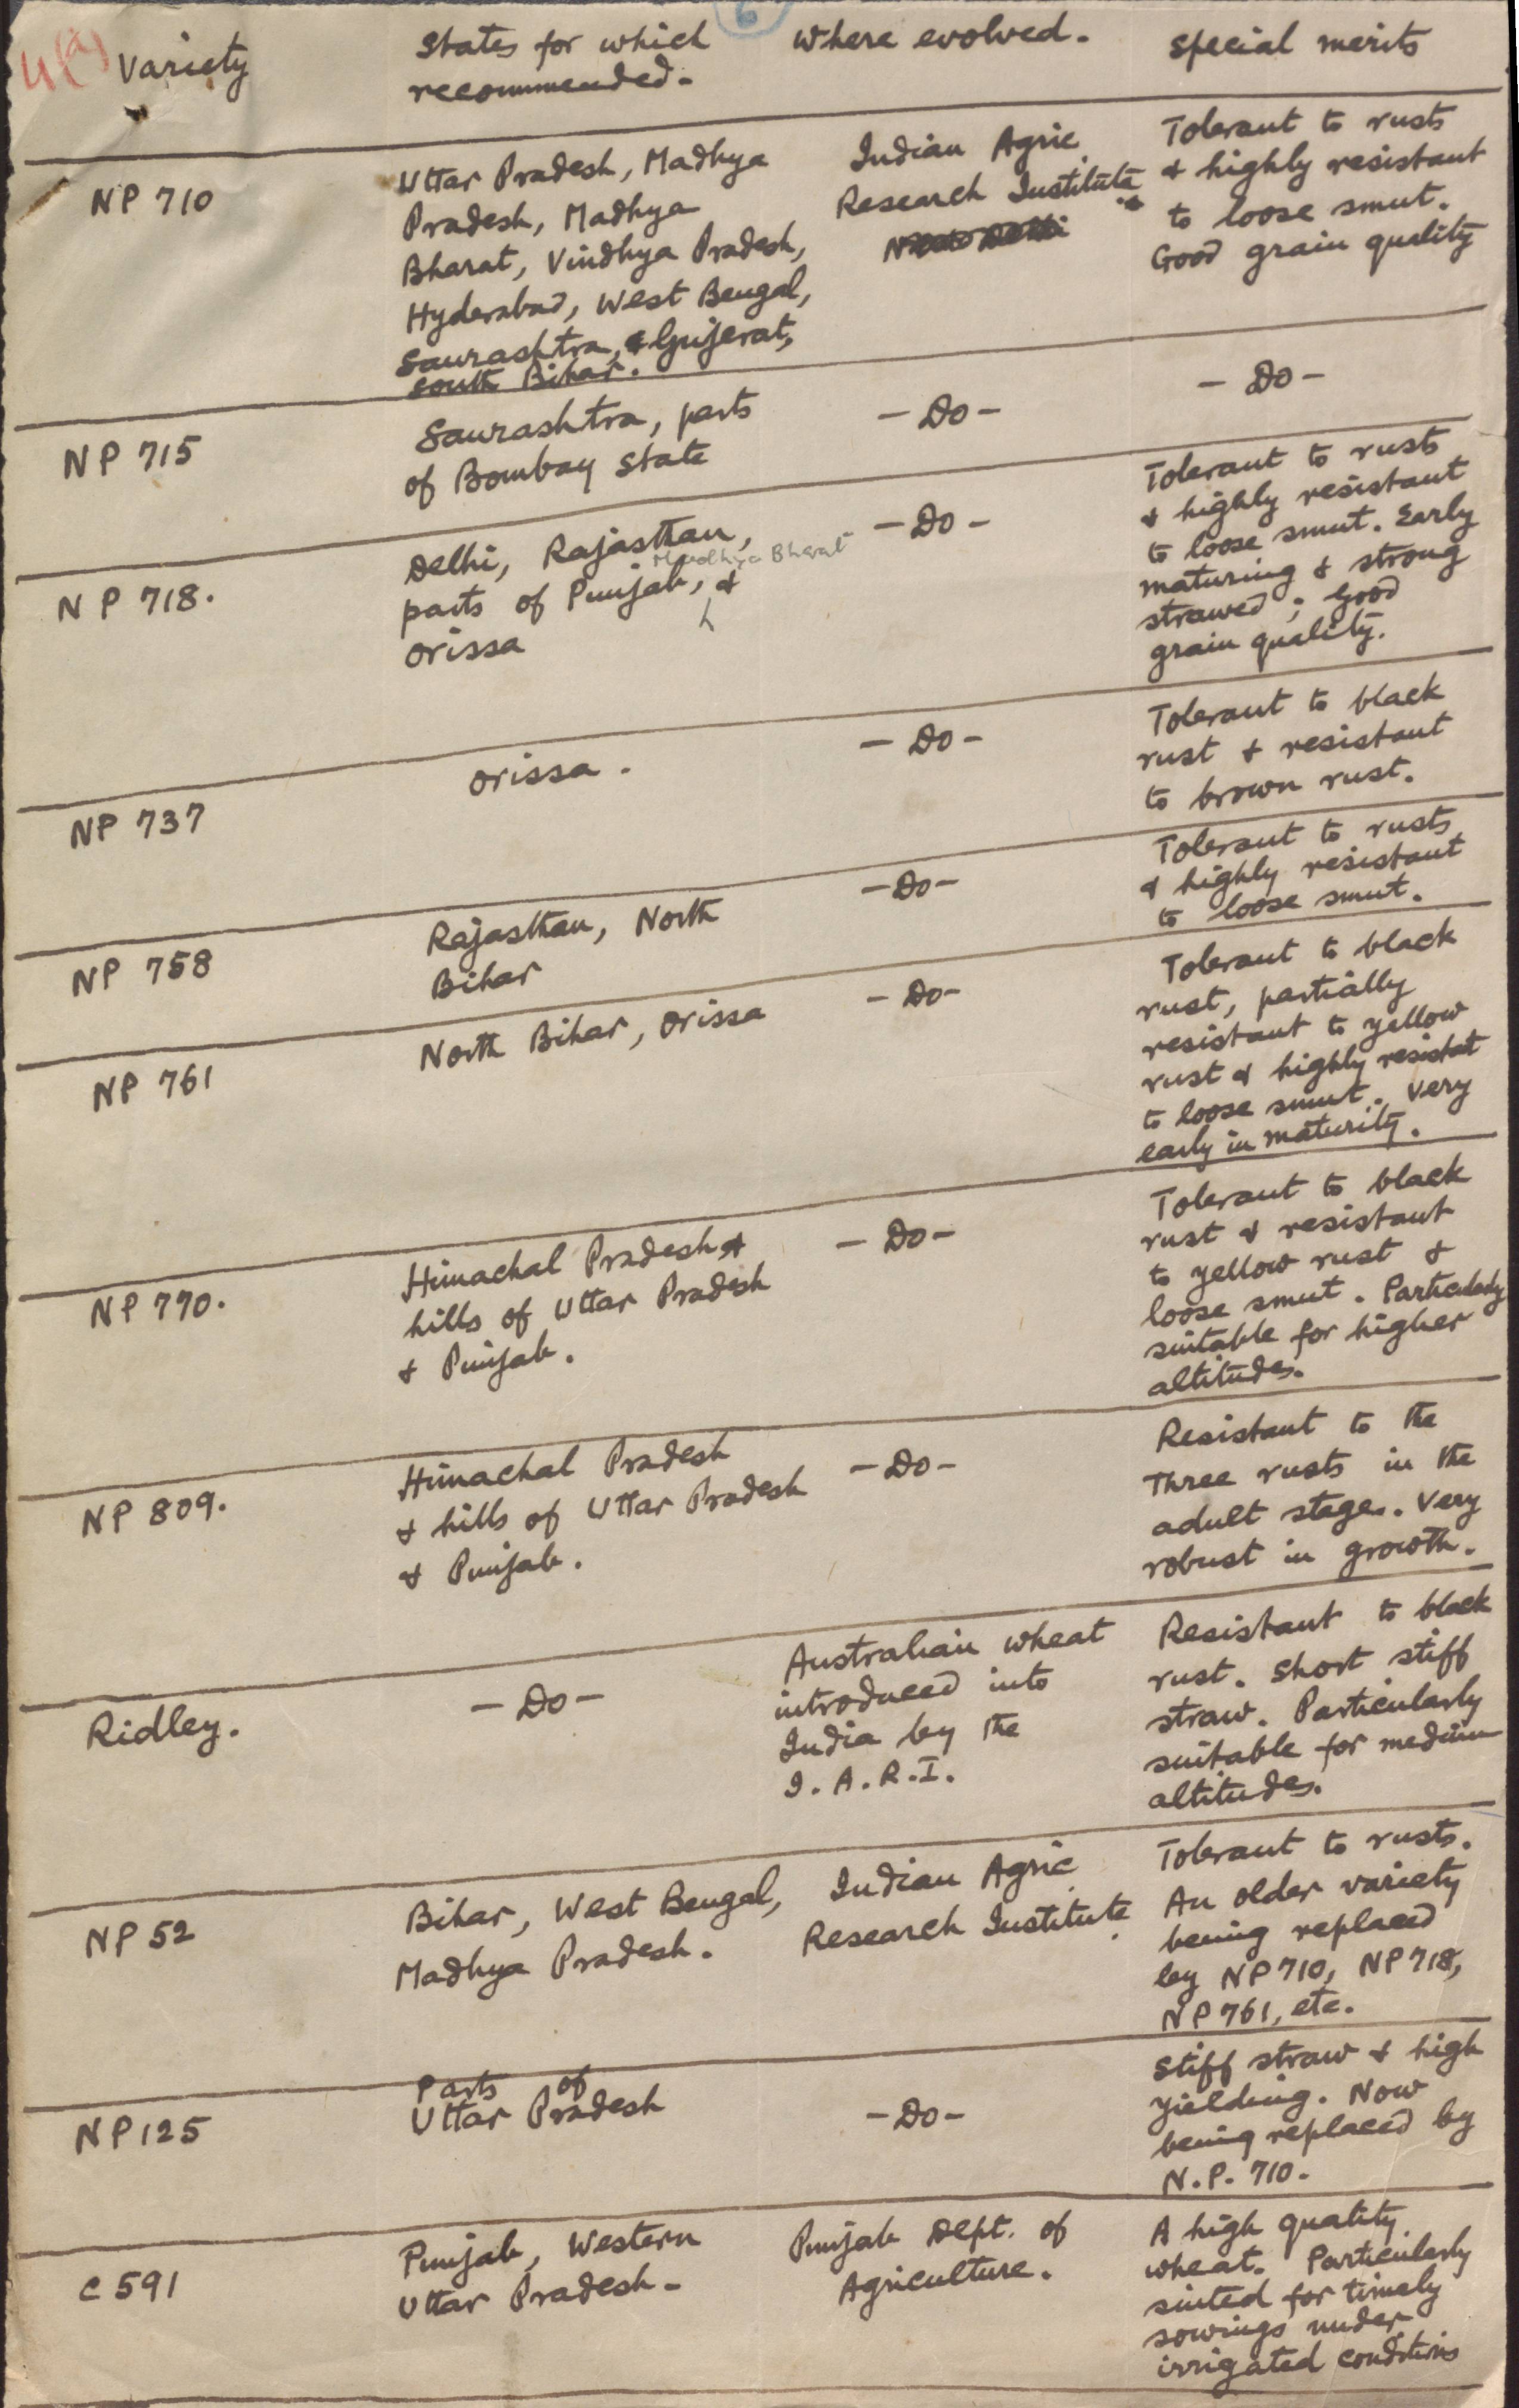 6
4(a)
Variety
States for which
recommended.
Where evolved.
Special merits
NP 710
Uttar Pradesh, Madhya
Pradesh, Madhya
Bharat, Vindhya Pradesh,
Hyderabad, West Bengal,
Saurashtra, & Gujerat,
South Bihar.
Indian Agric.
Research Institute
Tolerant to rusts
& highly resistant
to loose smut.
Good grain quality
NP 715
Saurashtra, parts
of Bombay State
- Do -
- Do -
NP 718.
Delhi, Rajasthan,
Madhya Bharat
parts of Punjab, &
Orissa
- Do -
Tolerant to rusts
& highly resistant
to loose smut. Early
maturing & strong
strawed; Good
grain quality.
NP 737
Orissa.
- Do -
Tolerant to black
rust & resistant
to brown rust.
NP 758
Rajasthan, North
Bihar
- Do -
Tolerant to rusts
& highly resistant
to loose smut.
NP 761
North Bihar, Orissa
- Do -
Tolerant to black
rust, partially
resistant to yellow
rust & highly resistat
to loose smut. Very
early in maturity.
NP 770.
Himachal Pradesh &
hills of Uttar Pradesh
& Punjab.
- Do -
Tolerant to black
rust & resistant
to yellow rust &
loose smut. Particularly
suitable for higher
altitudes.
NP 809.
Himachal Pradesh
& hills of Uttar Pradesh
& Punjab.
- Do -
Resistant to the
three rusts in the
adult stage. Very
robust in growth.
Ridley.
- Do -
Australian wheat
introduced into
India by the
I.A.R.I.
Resistant to black
rust. Short stiff
straw. Particularly
suitable for medium
altitudes.
NP 52
Bihar, West Bengal,
Madhya Pradesh.
Indian Agric.
Research Institute.
Tolerant to rusts.
An older variety
being replaced
by NP 710, NP 718,
NP 761, etc.
NP 125
Parts of
Uttar Pradesh
- Do -
Stiff straw & high
yielding. Now
being replaced by
N.P. 710.
C 591
Punjab, Western
Uttar Pradesh.
Punjab Dept. of
Agriculture.
A high quality
wheat. Particularly
suited for timely
sowings under
irrigated conditions